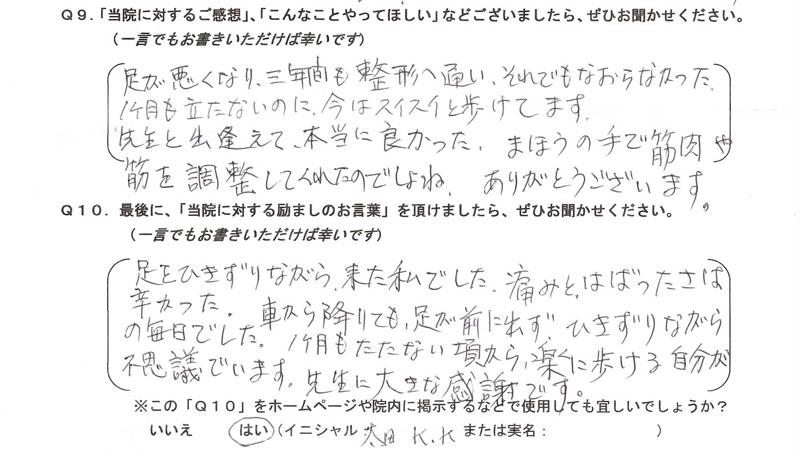 Q9．「当院に対するご感想」、「こんなことやってほしい」などございましたら、ぜひお聞かせください。
（一言でもお書きいただけば幸いです）
足が悪くなり、三年間も整形へ通い、それでもなおらなかった。
1ヶ月も立たないのに、今はスイスイと歩けてます。
先生と出逢えて、本当に良かった。まほうの手で筋肉や
筋を調整してくれたのでしょね。ありがとうございます。
Q10．最後に、「当院に対する励ましのお言葉」を頂けましたら、ぜひお聞かせください。
（一言でもお書きいただけば幸いです）
足をひきずりながら、来た私でした。痛みと、はばったさは
辛かった。車から降りても、足が前に出ず ひきずりながら
の毎日でした。1ヶ月もたたない頃から、楽に歩ける自分が
不思議でいます。先生に大きな感謝です。
※この「Q10」をホームページや院内に掲示するなどで使用しても宜しいでしょうか？
いいえ はい（イニシャル K.K または実名： ）